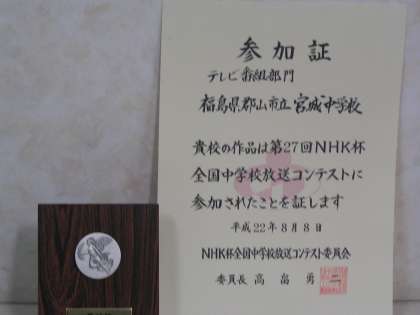 参加証
テレビ番組部門
福島県郡山市立宮城中学校
貴校の作品は第27回NHK杯
全国中学校放送コンテストに
参加されたことを証します
平成22年8月8日
NHK杯全国中学校放送コンテスト委員会
委員長 高畠勇二